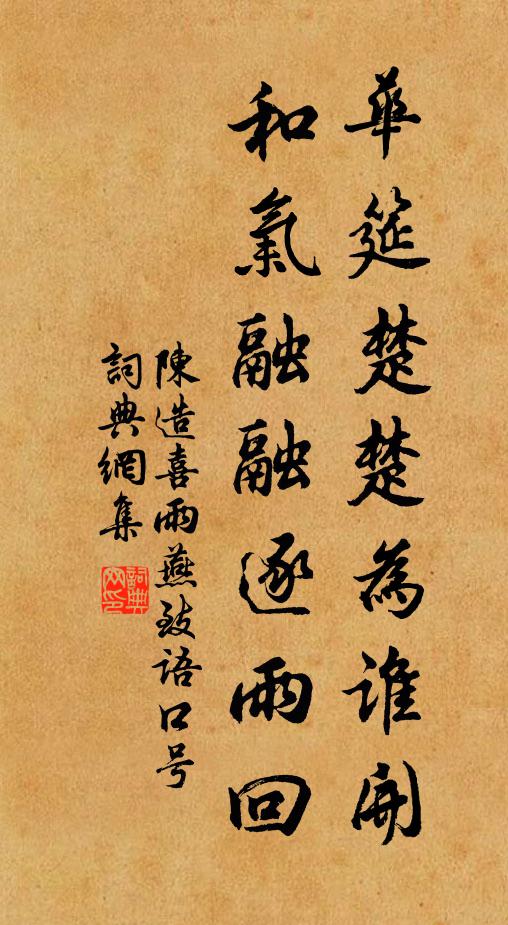 華筵楚楚為誰開
和氣融融逐雨回
陳造喜雨燕致语口号
詞典網集
詞典网印